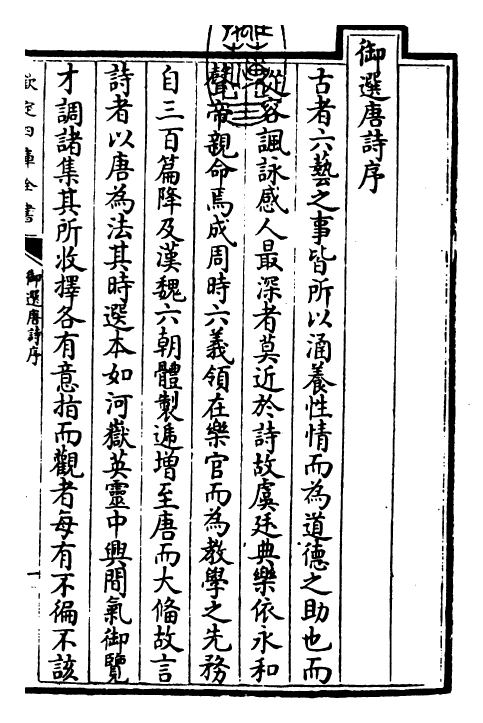 御選唐詩序
古者六藝之事皆所以涵養性情而為道德之助也而
從容諷詠感人最深者莫近於詩故虞廷典樂依永和
聲帝親命焉成周時六義領在樂官而為教學之先務
自三百篇降及漢魏六朝體製遞增至唐而大備故言
詩者以唐為法其時選本如河嶽英靈中興間氣御覽
才調諸集其所收擇各有意指而觀者每有不徧不該
欽定四庫全書
御選唐詩序
一